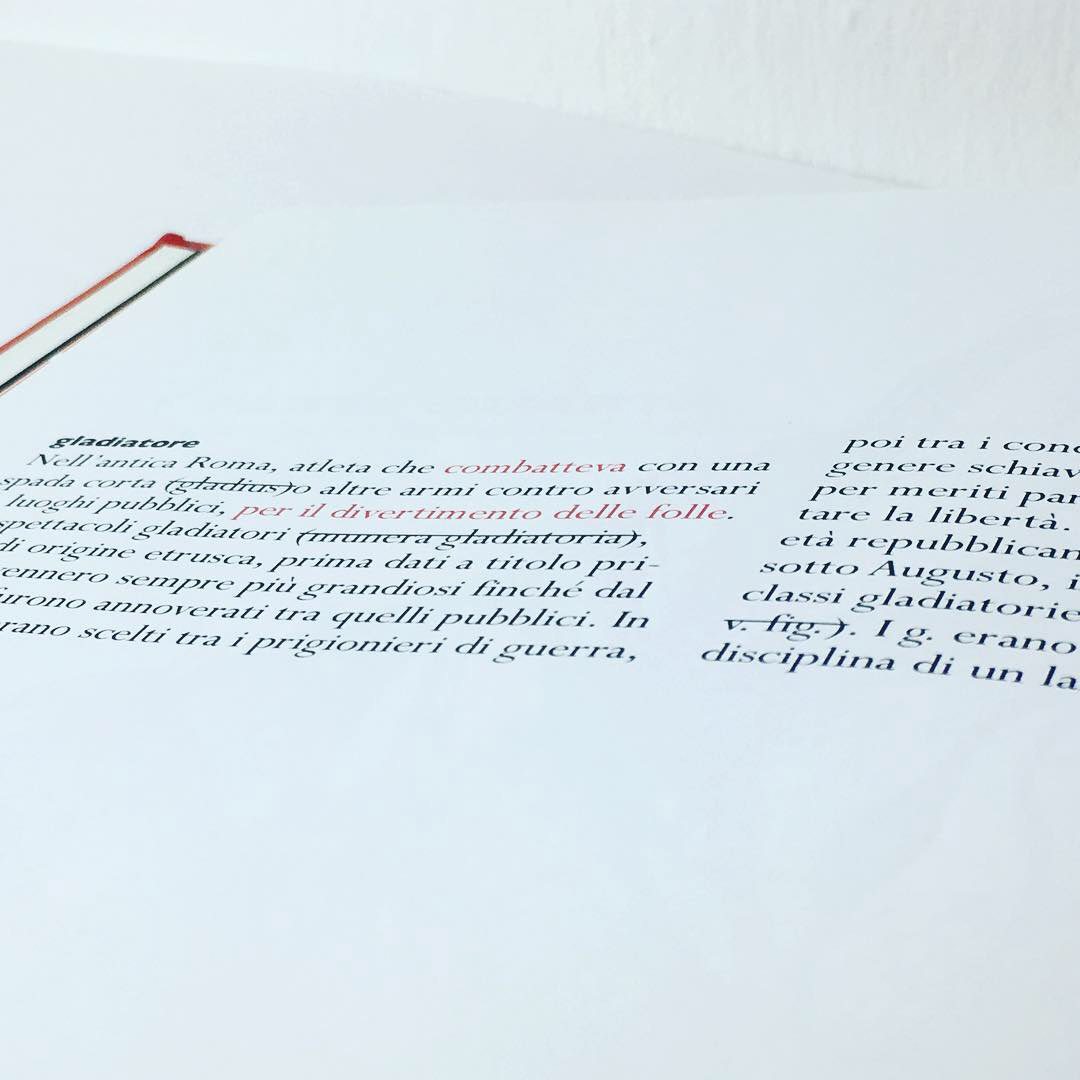 gladiatore
Nell'antica Roma, atleta che combatteva con una
spada corta (gladius)o altre armi contro avversari
luoghi pubblici, per il divertimento delle folle.
spettacoli gladiatori (munera gladiatoria),
di origine etrusca, prima dati a titolo pri-
vennero sempre più grandiosi finché dal
furono annoverati tra quelli pubblici. In
erano scelti tra i prigionieri di guerra,
poi tra i cond
genere schiav
per meriti par
tare la libertà.
età repubblican
sotto Augusto, i
classi gladiatorie
v. fig.). I g. erano
disciplina di un la